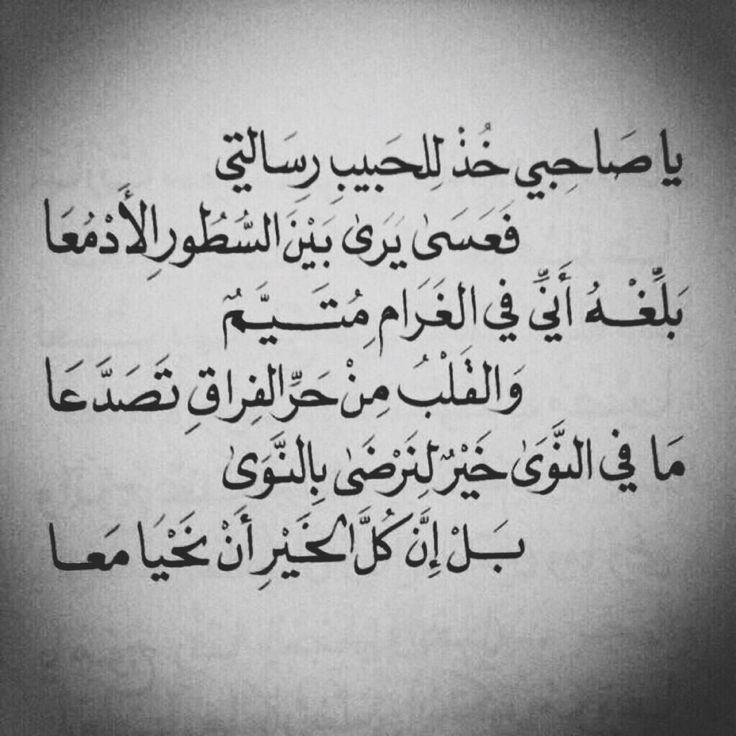 يا صَاحِبي خُذْ لِلحَبيبِ رِسَالتي
فَعَسَىٰ يَرَىٰ بَيْنَ السُّطُورِ الأَدْمُعَا
بَلِّغْـهُ أَنِّي في الغَرَامِ مُتَـــيَّـمٌ
وَالقَلْبُ مِنْ حَرِّ الفِراقِ تَصَدَّعَا
مَا في النَّوَىٰ خَيْرٌ لِنَرْضَىٰ بِالنَّوَىٰ
بَـلْ إِنَّ كُلَّ الخَيْرِ أَنْ نَحْيَا مَعــا